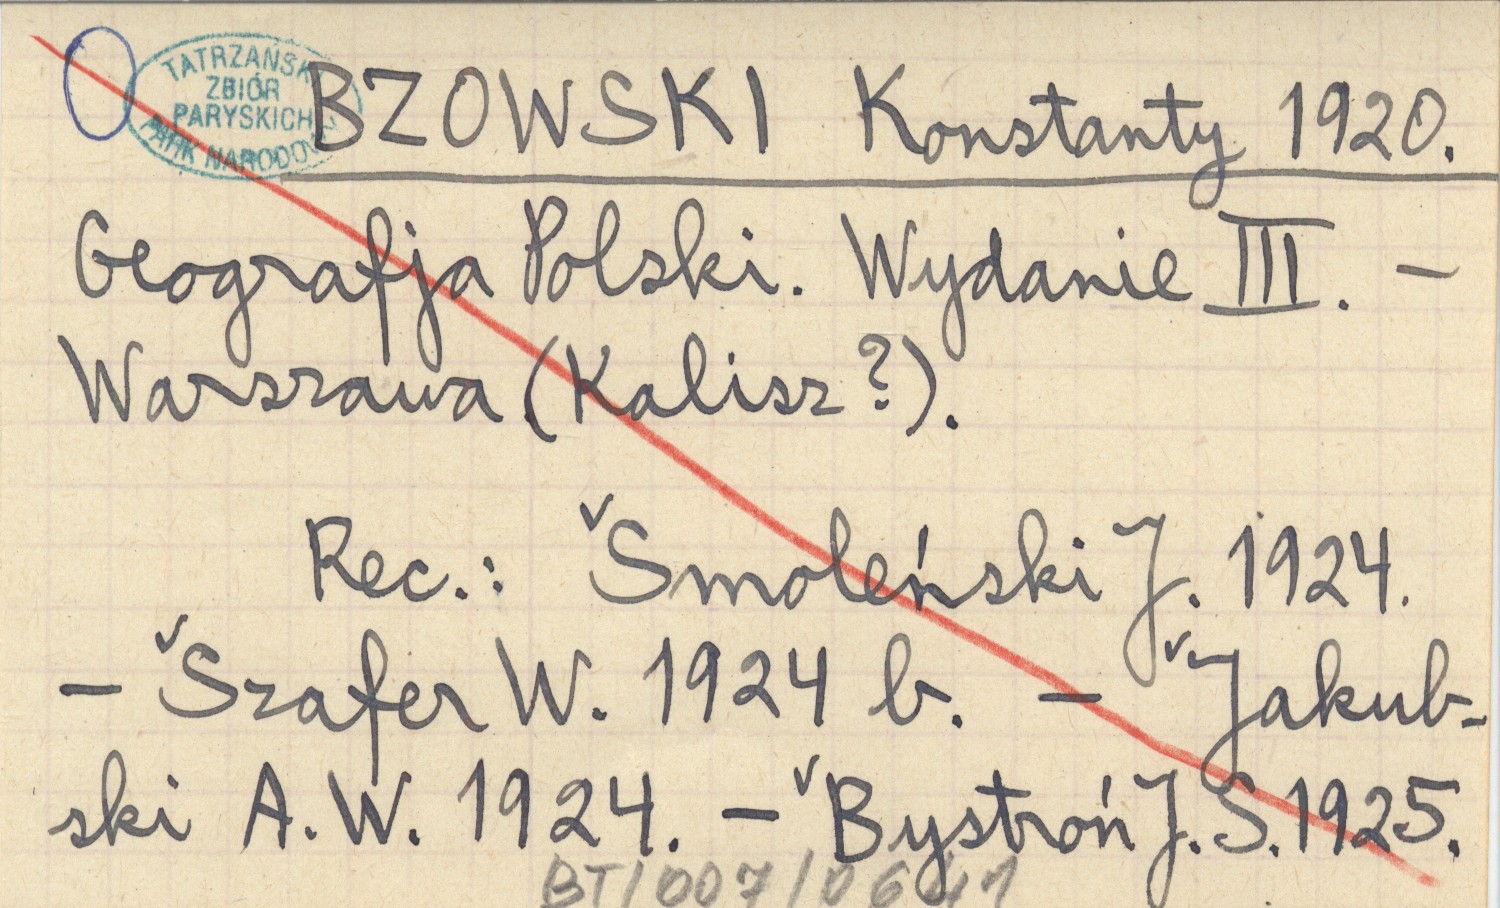 TATRZAŃSKI
ZBIÓR
PARYSKICH
PARK NARODOWY
BZOWSKI Konstanty 1920.
Geografja Polski. Wydanie III. –
Warszawa (Kalisz?).
Rec.: ˇSmoleński J. 1924.
– ˇSzafer W. 1924 b. – ˇJakub-
ski A.W. 1924. – ˇBystroń J.S. 1925.
BT/007/0641